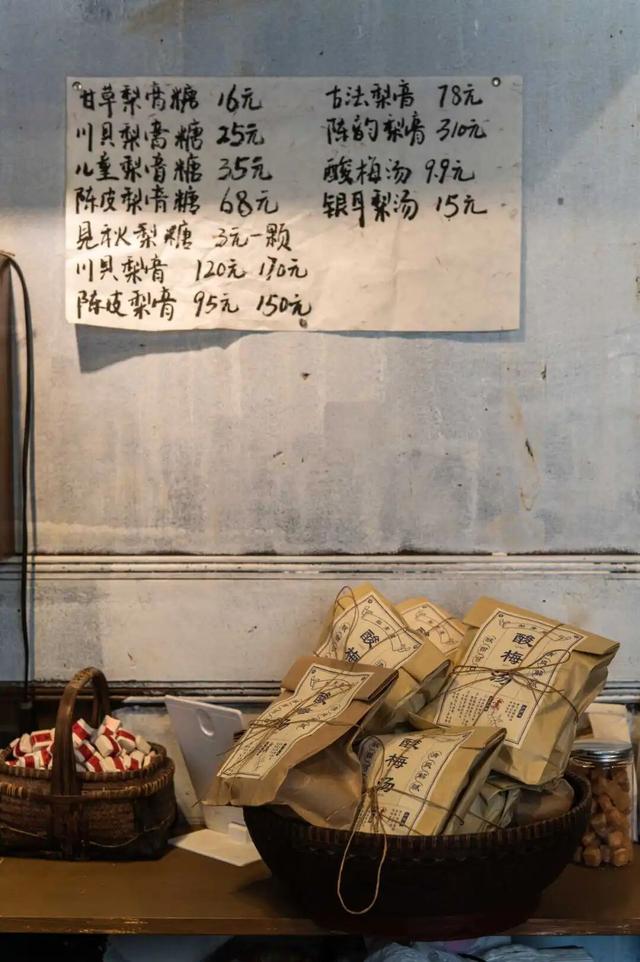 甘草梨膏糖 16元
川贝梨膏糖 25元
儿童梨膏糖 35元
陈皮梨膏糖 68元
见秋梨糖 3元一颗
川贝梨膏 120元 170元
陈皮梨膏 95元 150元
古法梨膏 78元
陈韵梨膏 310元
酸梅汤 9.9元
银耳梨汤 15元
酸梅
酸梅汤
酸梅汤